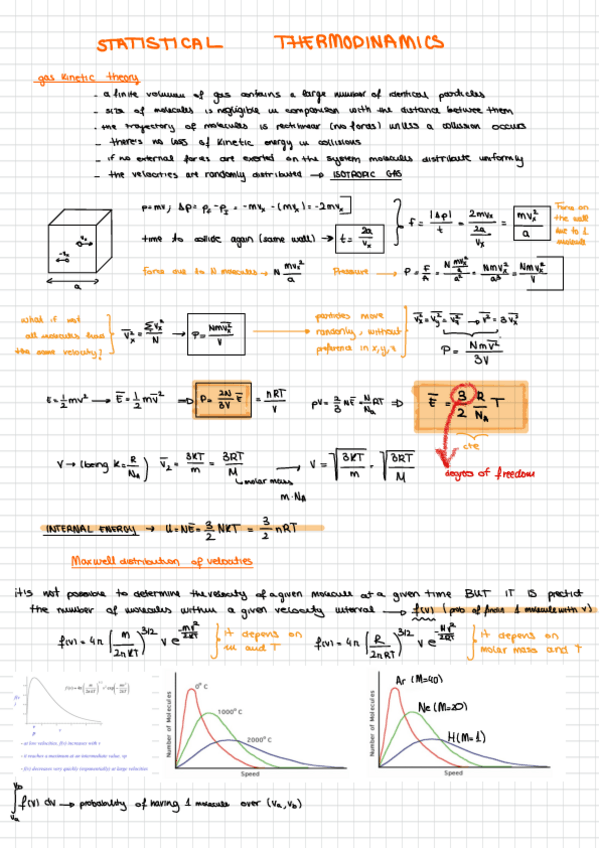 STATISTICAL THERMODINAMICS
gas kinetic theory
- a finite volumum of gas contains a large number of identical particles
- size of molecules is negligible in comparison with the distance between them
- the trajectory of molecules is rectilinear (no forces) unless a collision occurs
- there's no loss of kinetic energy in collisions
- if no external forces are exerted on the system molecules distribute uniformly
- the velocities are randomly distributed → ISOTROPIC GAS
p=mv; Δp= p_F - p_I = -mv_x - (mv_x) = -2mv_x
f = |Δp|/t = 2mv_x/(2a/v_x) = mv_x²/a
Force on the wall due to 1 molecule
time to collide again (same wall) → t = 2a/v_x
a
Force due to N molecules → N mv_x²/a
Pressure → P = F/A = (N mv_x²/a)/a² = Nmv_x²/a³ = Nmv_x²/V
what if not all molecules have the same velocity?
v̄_x² = Σv_x²/N → P = Nmv̄_x²/V
particles move randomly, without preference in x,y,z
v̄_x² = v̄_y² = v̄_z² → v̄² = 3v̄_x²
P = Nmv̄²/3V
E = 1/2 mv² → Ē = 1/2 mv̄² ⇒ P = 2N/3V Ē = nRT/V
pV = 2/3 NĒ = N/N_A RT ⇒ Ē = 3/2 R/N_A T
cte
degrees of freedom
V → (being k = R/N_A) v̄² = 3KT/m = 3RT/M
molar mass
m·N_A
→ V = √(3KT/m) = √(3RT/M)
INTERNAL ENERGY → U = NĒ = 3/2 NKT = 3/2 nRT
Maxwell distribution of velocities
it is not possible to determine the velocity of a given molecule at a given time BUT IT IS predict
the number of molecules within a given velocity interval → f(v) (prob of finding 1 molecule with v)
f(v) = 4π (m/2πKT)^3/2 v e^(-mv²/2KT)
it depens on m and T
f(v) = 4π (R/2πRT)^3/2 v e^(-Mv²/2RT)
it depens on molar mass and T
• at low velocities, f(v) increases with v
• it reaches a maximum at an intermediate value, vp
• f(v) decreases very quickly (exponentially) at large velocities
Number of Molecules
0° C
1000° C
2000° C
Speed
Number of Molecules
Ar (M=40)
Ne (M=20)
H (M=1)
Speed
∫ f(v) dv → probability of having 1 molecule over (v_a, v_b)